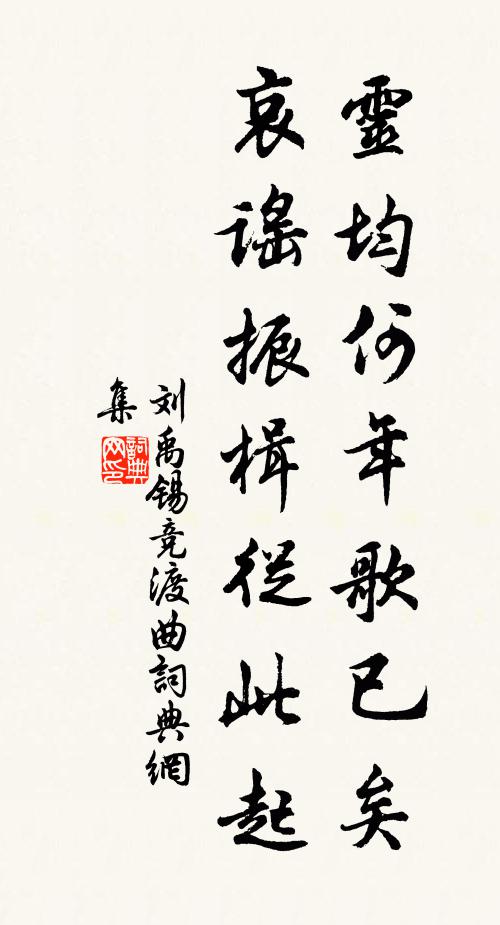 靈均何年歌已矣
哀謠振楫從此起
刘禹锡竞渡曲詞典網
集
詞典
网印